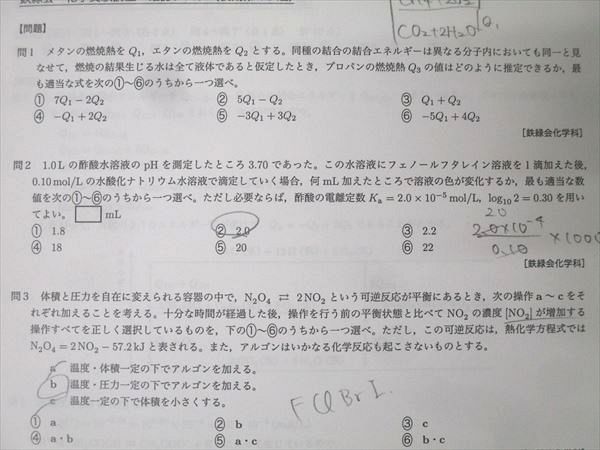 【問題】
CO₂+2H₂O Q₁
問1 メタンの燃焼熱を Q₁，エタンの燃焼熱を Q₂ とする。同種の結合の結合エネルギーは異なる分子内においても同一と見
なせて，燃焼の結果生じる水は全て液体であると仮定したとき，プロパンの燃焼熱 Q₃ の値はどのように推定できるか，最
も適当な式を次の①〜⑥のうちから一つ選べ。
① 7Q₁－2Q₂ ② 5Q₁－Q₂ ③ Q₁＋Q₂
④ －Q₁＋2Q₂ ⑤ －3Q₁＋3Q₂ ⑥ －5Q₁＋4Q₂
[鉄緑会化学科]
問2 1.0 L の酢酸水溶液の pH を測定したところ 3.70 であった。この水溶液にフェノールフタレイン溶液を 1 滴加えた後，
0.10 mol/L の水酸化ナトリウム水溶液で滴定していく場合，何 mL 加えたところで溶液の色が変化するか，最も適当な数
値を次の①〜⑥のうちから一つ選べ。ただし必要ならば，酢酸の電離定数 Kₐ = 2.0 × 10⁻⁵ mol/L，log₁₀ 2 = 0.30 を用い
てよい。 mL
20
① 1.8 ② 2.0 ③ 2.2
2.0×10⁻⁴
0.10
×1000
④ 18 ⑤ 20 ⑥ 22
[鉄緑会化学科]
問3 体積と圧力を自在に変えられる容器の中で，N₂O₄ ⇄ 2NO₂ という可逆反応が平衡にあるとき，次の操作 a〜c をそ
れぞれ加えることを考える。十分な時間が経過した後，操作を行う前の平衡状態と比べて NO₂ の濃度 [NO₂] が増加する
操作すべてを正しく選択しているものを，下の①〜⑥のうちから一つ選べ。ただし，この可逆反応は，熱化学方程式では
N₂O₄ = 2NO₂ － 57.2 kJ と表される。また，アルゴンはいかなる化学反応も起こさないものとする。
a 温度・体積一定の下でアルゴンを加える。
b 温度・圧力一定の下でアルゴンを加える。
c 温度一定の下で体積を小さくする。
F Cl Br I.
① a ② b ③ c
④ a・b ⑤ a・c ⑥ b・c